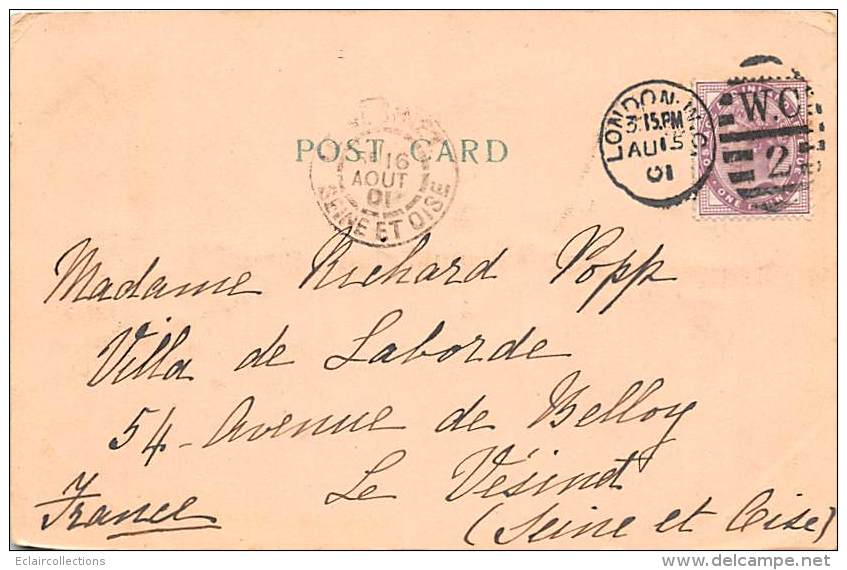 POST CARD
LONDON.W.C
3.15.PM
AU 15
01
W.C
2
16
AOUT
01
SEINE ET OISE
Madame Richard Popp
Villa de Laborde
54 - Avenue de Belloy
Le Vésinet
France
(Seine et Oise)
Eclaircollections
www.delcampe.net